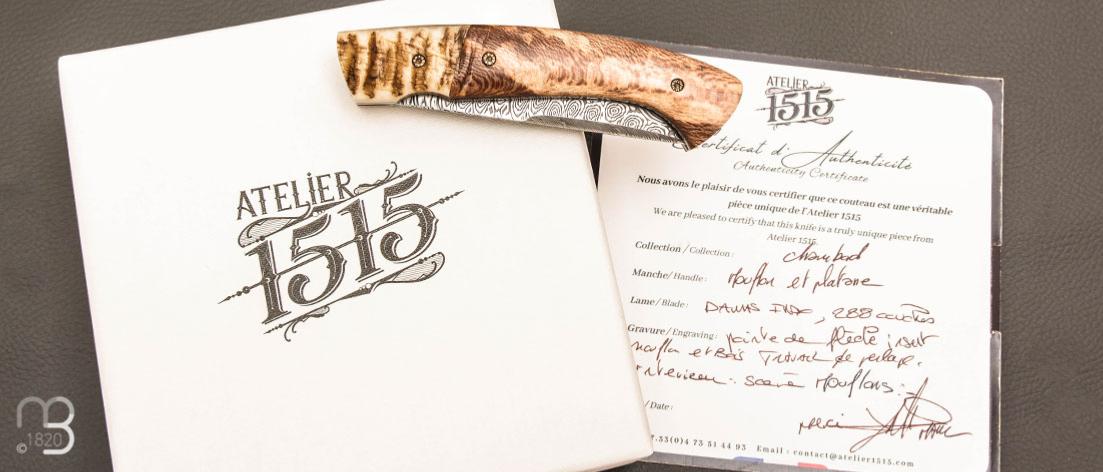 ATELIER
1515
ATELIER
1515
Certificat d'Authenticité
Authenticity Certificate
Nous avons le plaisir de vous certifier que ce couteau est une véritable
pièce unique de l'Atelier 1515
We are pleased to certify that this knife is a truly unique piece from
Atelier 1515.
Collection / Collection : chambord
Manche/ Handle : Mouflon et platane
Lame / Blade : DAMAS INOX, 288 couches
Gravure / Engraving : pointe de flèche insert
mouflon et Bois Travail de perlage.
interieur : scène Mouflons.
/ Date :
merci
.33(0)4 73 51 44 93 Email : contact@atelier1515.com
MB
©1820